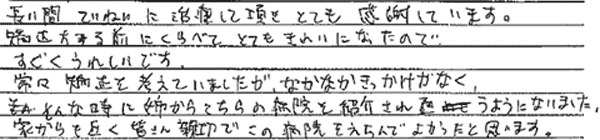 長い間 ていねいに治療して頂きとても感謝しています。
矯正をする前にくらべて、とてもきれいになったので
すごくうれしいです。
常々 矯正を考えていましたが、なかなかきっかけがなく、
そんな時に姉からこちらの病院を紹介され うようになりました。
家からも近く皆さん親切でこの病院をえらんでよかったと思います。